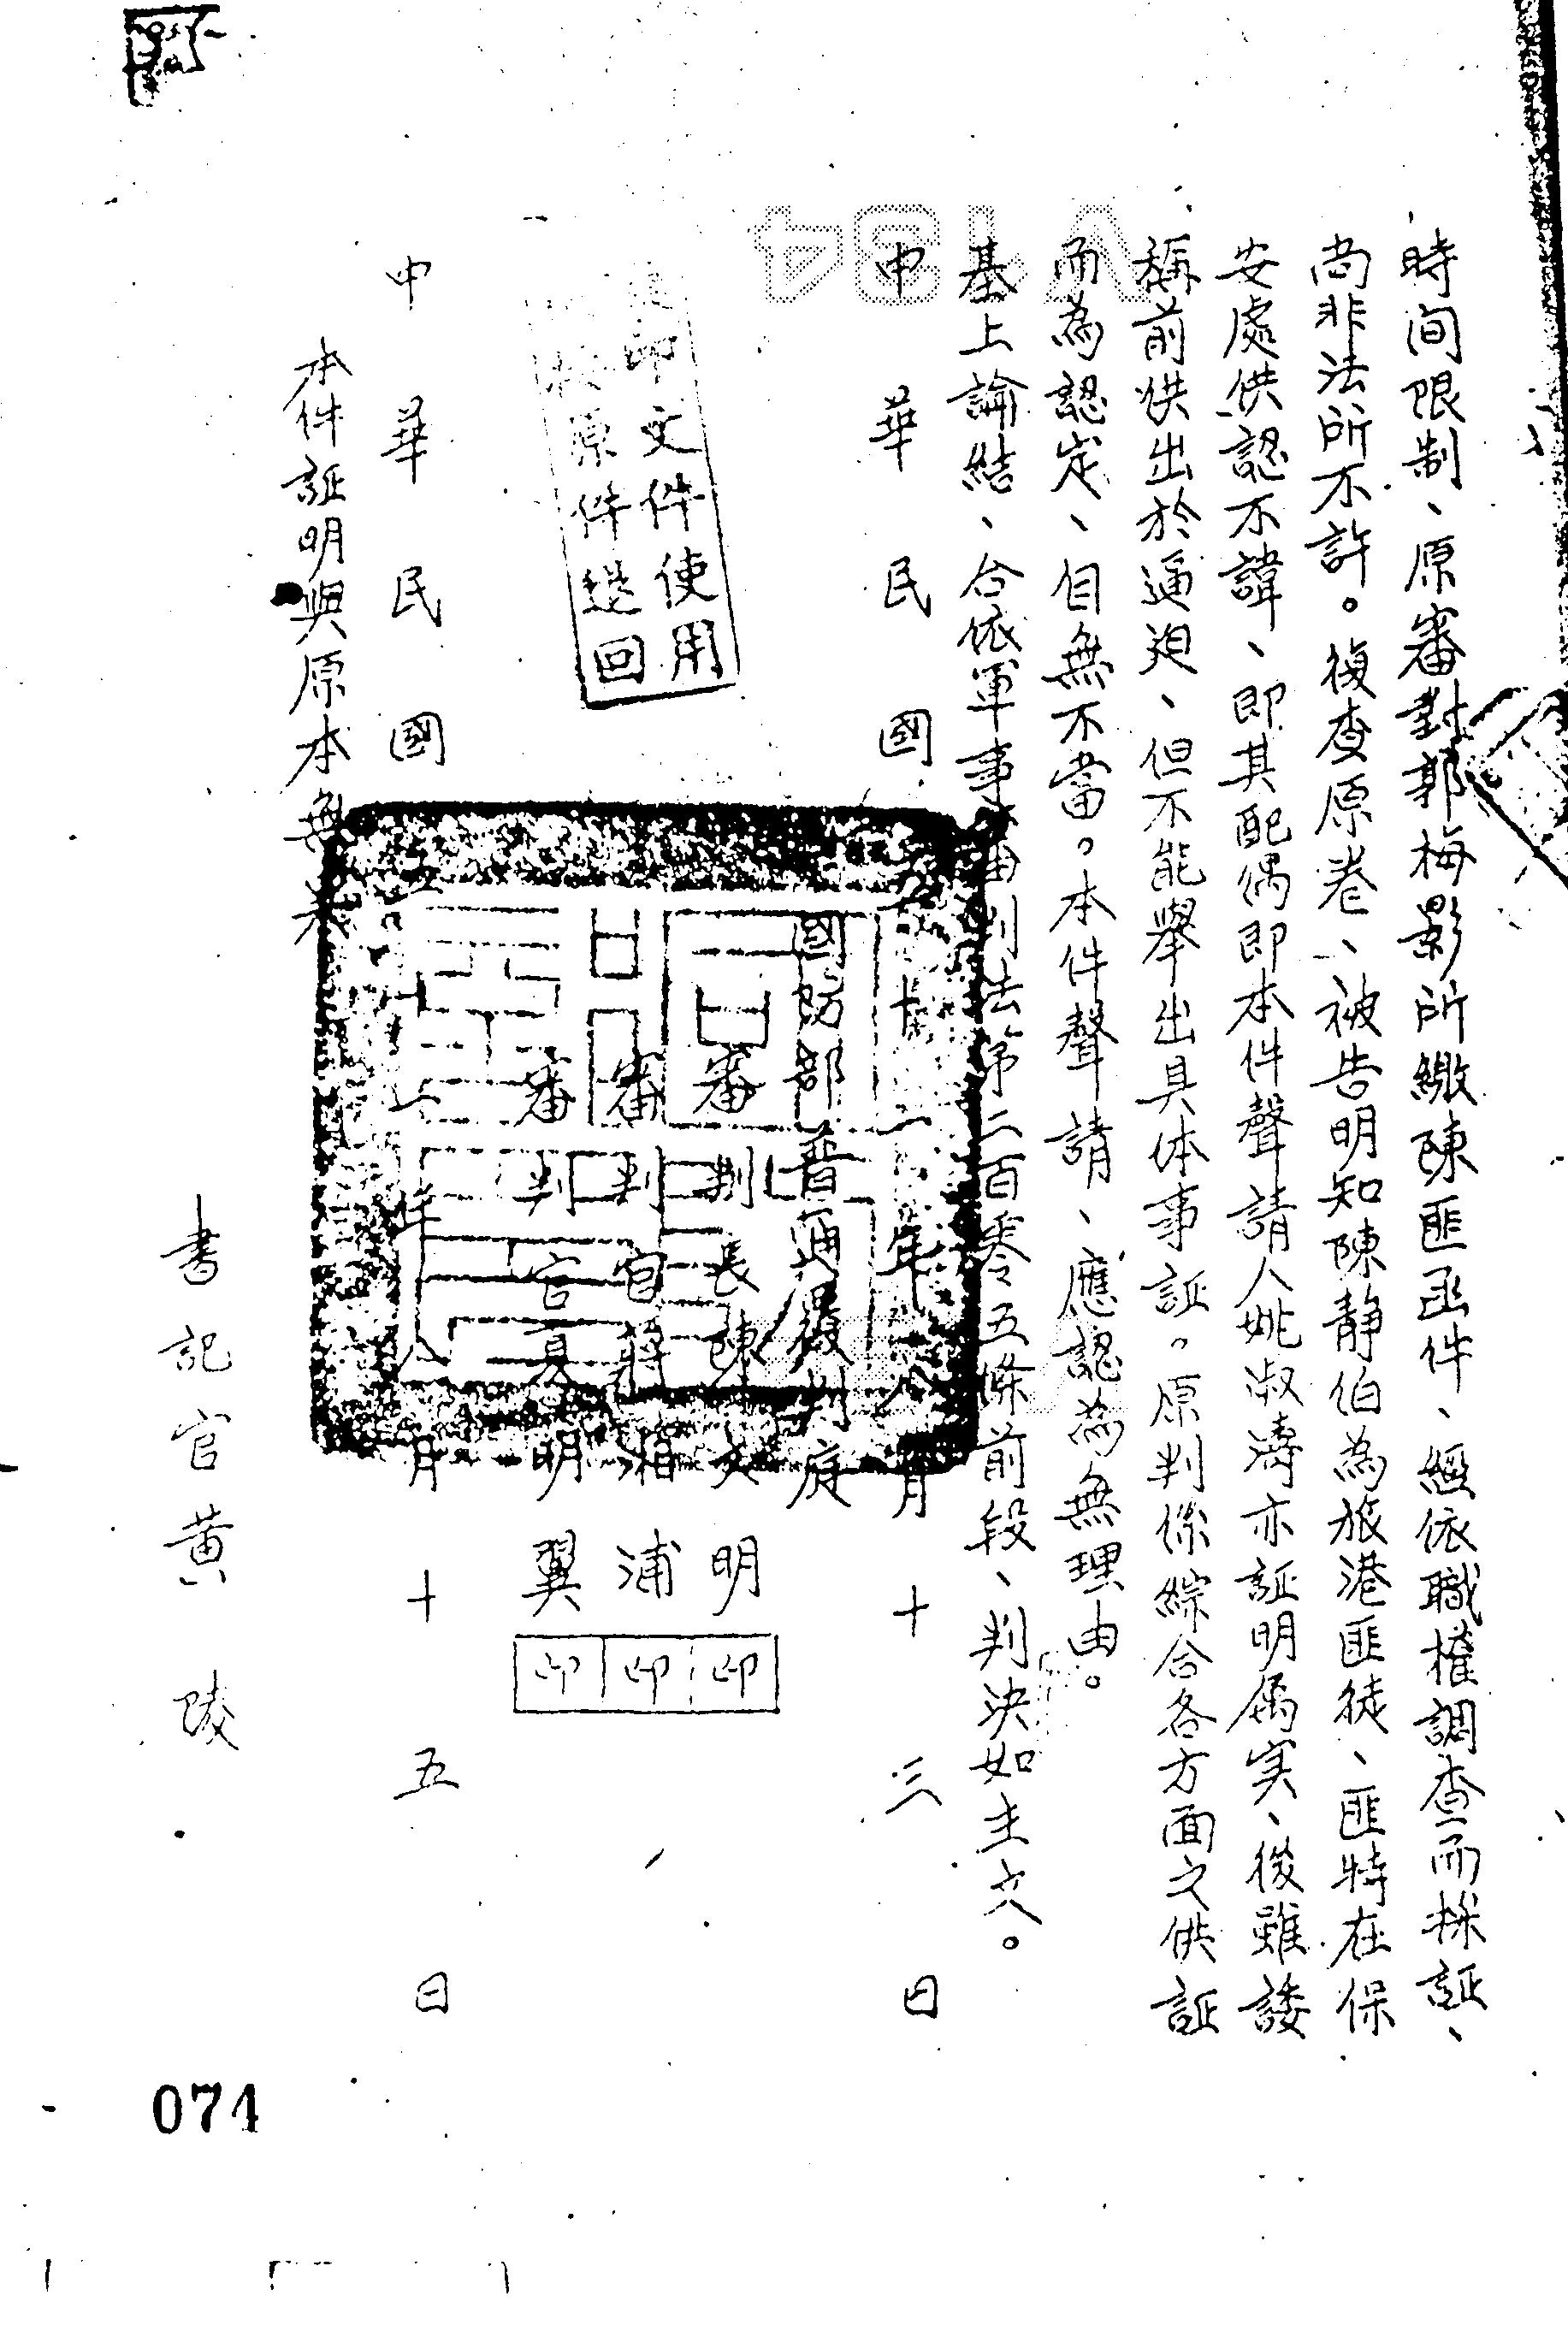 時间限制、原審對郭梅影所繳陳匪函件、經依職權調查而採証、
尚非法所不許。復查原卷、被告明知陳静伯為旅港匪徒、匪特在保
安處供認不諱、即其配偶即本件聲請人姚淑濤亦証明属实、後雖諉
稱前供出於逼廹、但不能舉出具体事証。原判係綜合各方面之供証
而為認定、自無不當。本件聲請、應認為無理由。
基上論結、合依軍事審判法第二百零五條前段、判決如主文。
中華民國五十二年八月十三日
國防部普通覆判庭
審判長陳文明
審判官蔣湘浦
審判官袁明翼
印印印
文件使用
原件送回
中華民國五十二年八月十五日
本件証明與原本無異
書記官黃陵
074